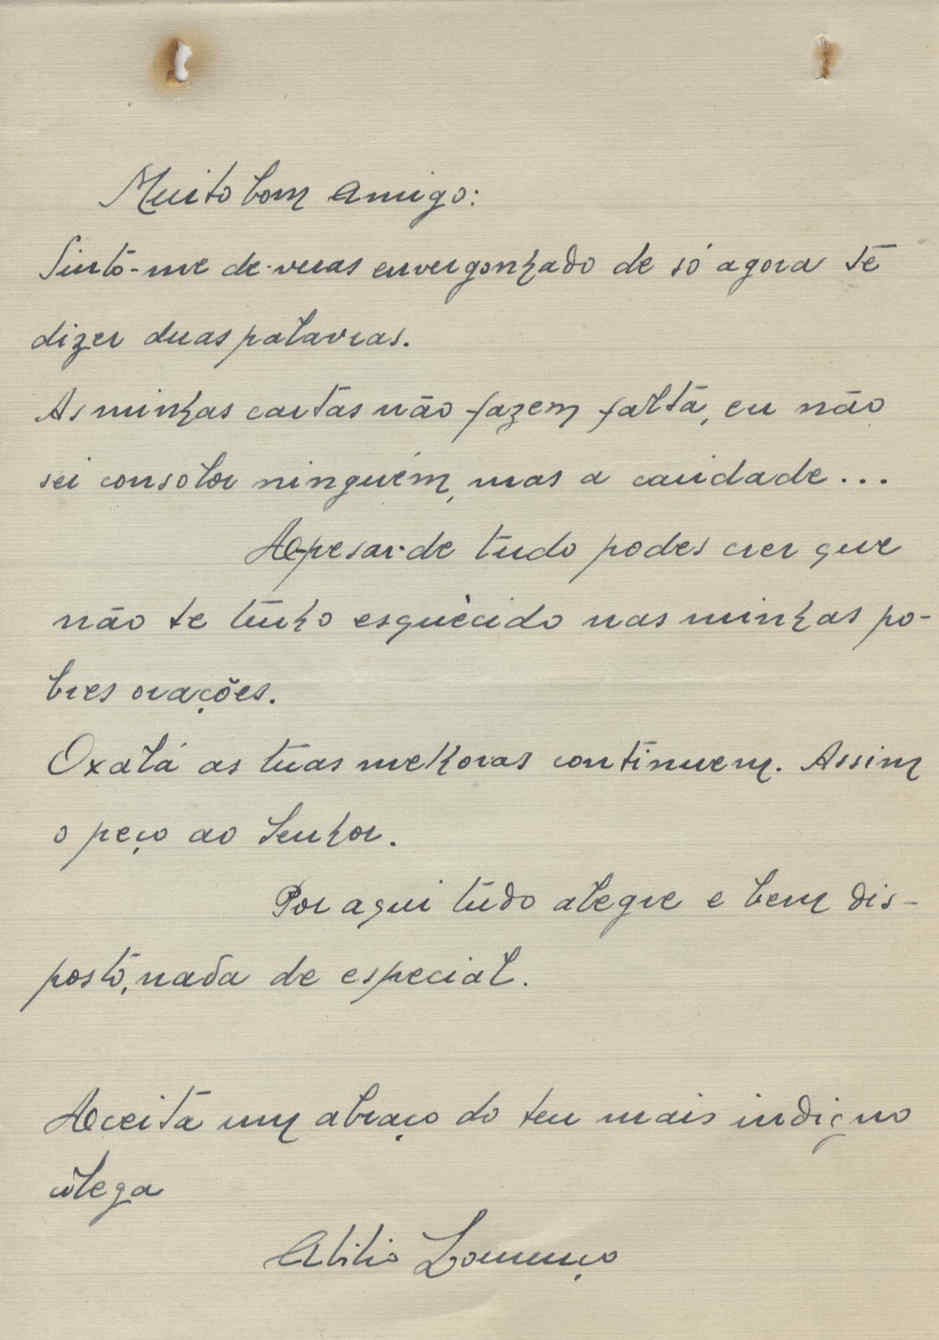 Muito bom amigo:
Sinto-me de-veras envergonhado de só agora te
dizer duas palavras.
As minhas cartas não fazem falta, eu não
sei consolar ninguém, mas a caridade...
Apesar-de tudo podes crer que
não te tenho esquècido nas minhas po-
bres orações.
Oxalá as tuas melhoras continuem. Assim
o peço ao Senhor.
Por aqui tudo alegre e bem dis-
posto, nada de especial.
Aceita um abraço do teu mais indigno
colega
Abílio Lourenço